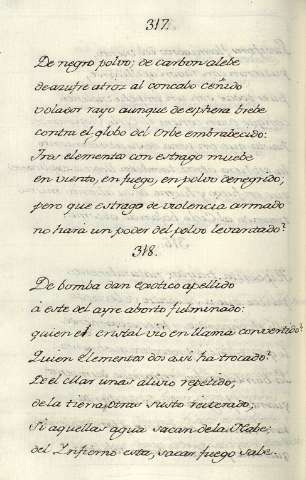 317.
De negro polvo; de carbon alebe
de azufre atroz al concabo ceñido
volador rayo aunque de esphera brebe
contra el globo del Orbe embrabecido:
Tras elementos con estrago muebe
en viento, en fuego, en polvo denegrido;
pero que estrago de violencia armado
no hara un poder del polvo levantado?
318.
De bomba dan exotico apellido
á este del ayre aborto fulminado:
quien el cristal vió en llama convertido?
Quien Elementos dos assi ha trocado?
De el Mar unas alivio repetido,
de la tierra, otras susto reiterado;
Si aquellas agua sacan de la Nabe;
del Infierno esta, sacar fuego sabe.